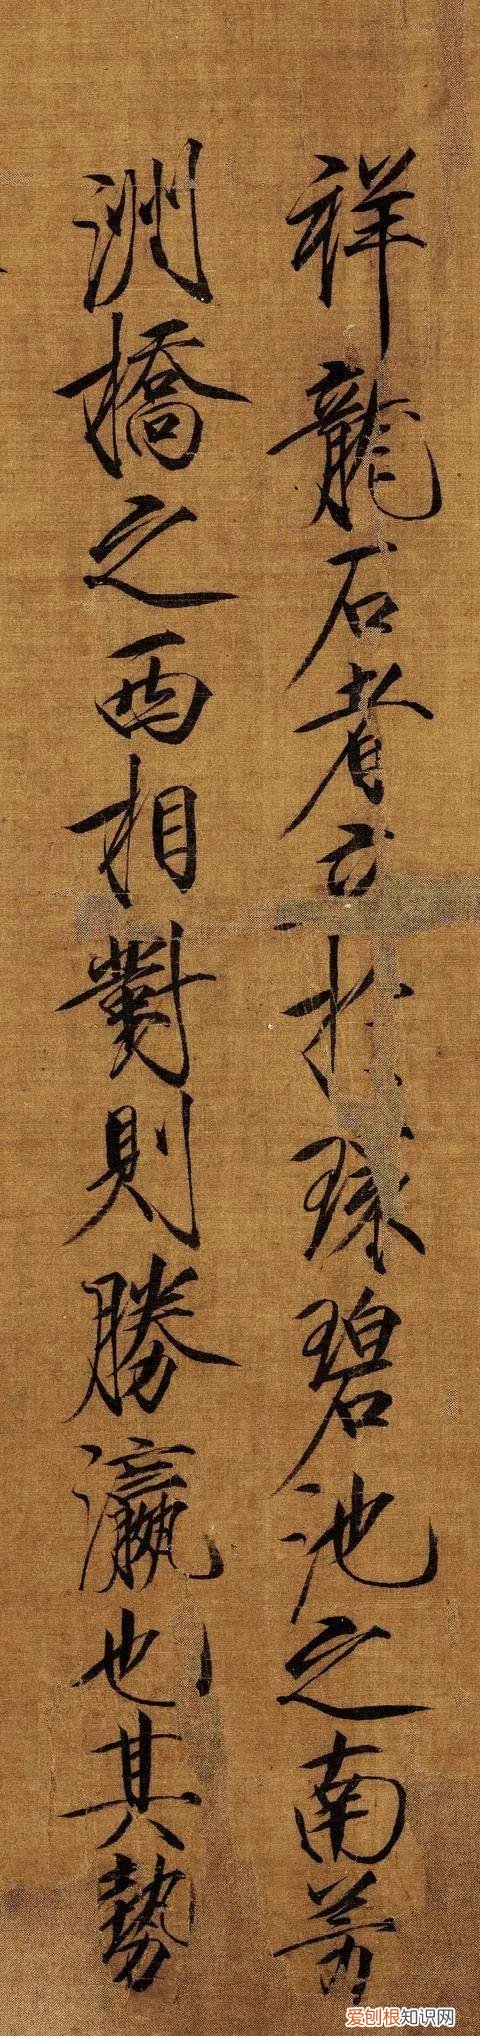 祥龍石者立於環碧池之南芳
洲橋之西相對則勝瀛也其勢
爱刨根知识网